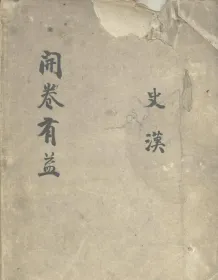 史漢
開卷有益